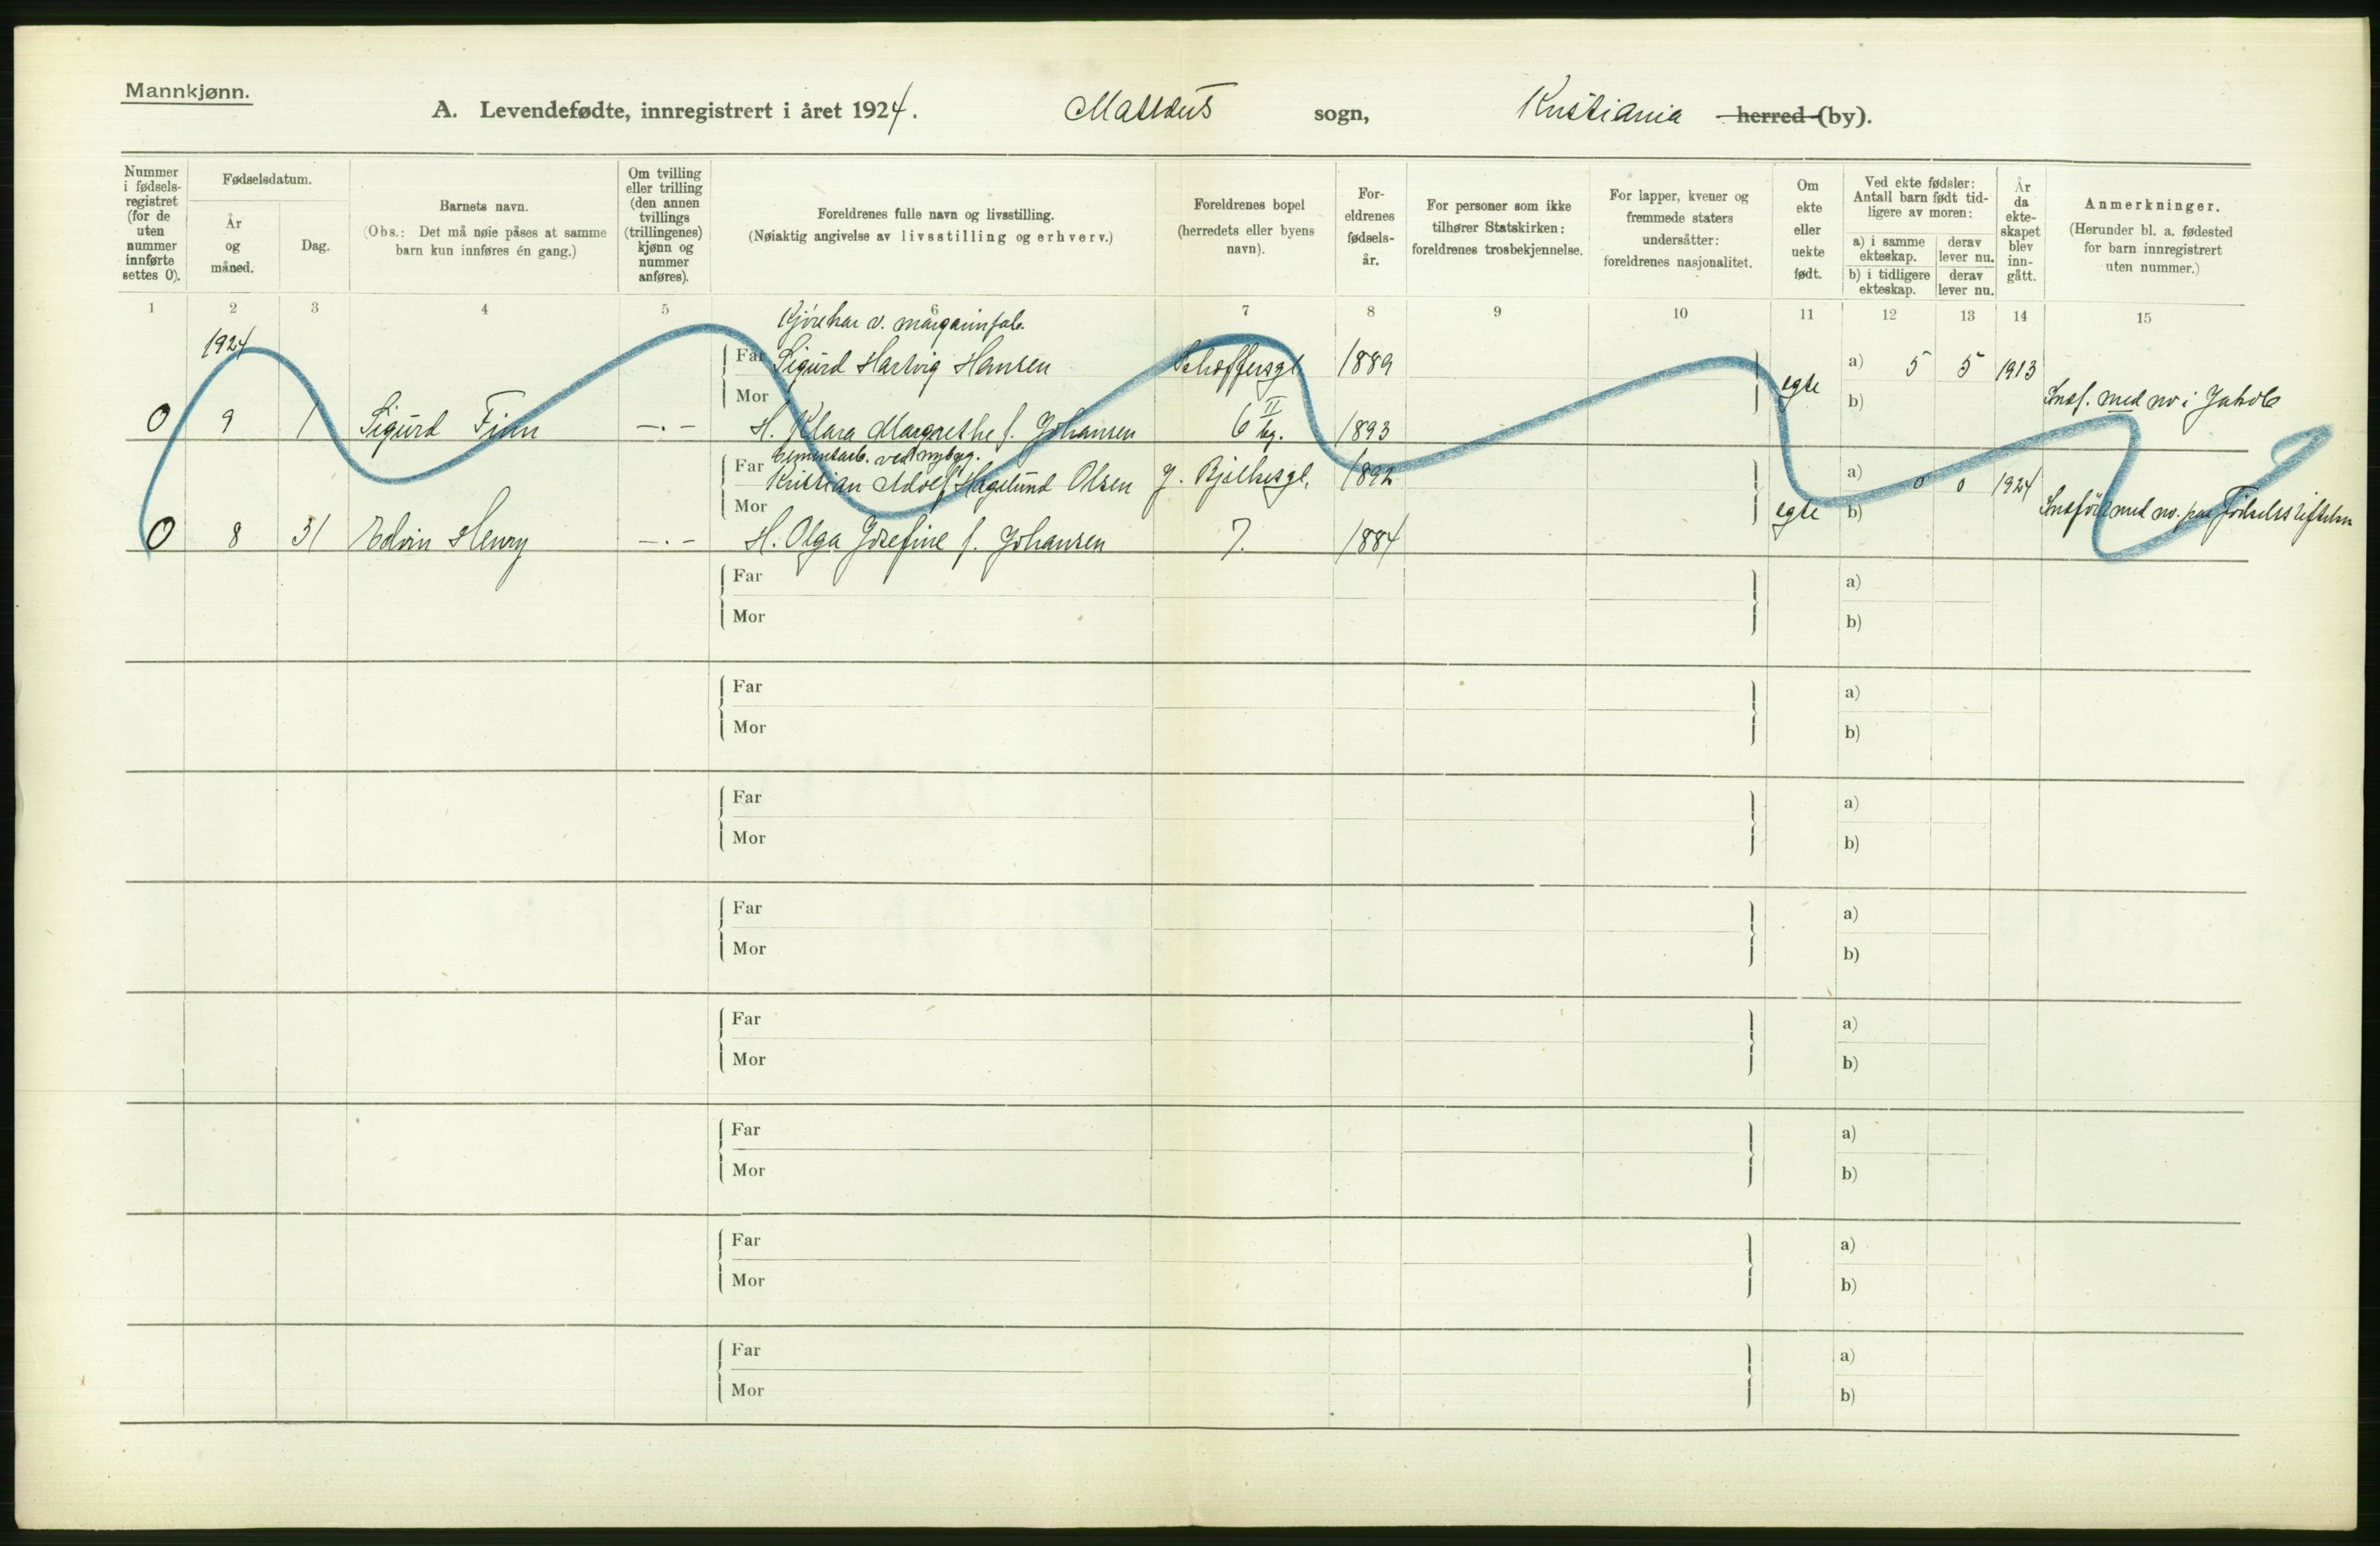 Mannkjønn.
A. Levendefødte, innregistrert i året 1924. Matteus sogn, Kristiania herred (by).
Nummer i fødsels-registret (for de uten nummer innførte settes 0).
Fødselsdatum.
År og måned.
Dag.
Barnets navn.
(Obs.: Det må nøie påses at samme barn kun innføres én gang.)
Om tvilling eller trilling (den annen tvillings (trillingenes) kjønn og nummer anføres).
Foreldrenes fulle navn og livsstilling.
(Nøiaktig angivelse av livsstilling og erhverv.)
Foreldrenes bopel (herredets eller byens navn).
For-eldrenes fødsels-år.
For personer som ikke tilhører Statskirken: foreldrenes trosbekjennelse.
For lapper, kvener og fremmede staters undersåtter: foreldrenes nasjonalitet.
Om ekte eller uekte født.
Ved ekte fødsler: Antall barn født tid-ligere av moren:
a) i samme ekteskap. derav lever nu.
b) i tidligere ekteskap. derav lever nu.
År da ekte-skapet blev inn-gått.
Anmerkninger.
(Herunder bl. a. fødested for barn innregistrert uten nummer.)
1 2 3 4 5 6 7 8 9 10 11 12 13 14 15
1924 Kjørekar v. margarinfab.
Far Sigurd Hartvig Hansen Schoffersgt 1889 a) 5 5 1913
Mor egte b) Indf. med no i Jakob
0 9 1 Sigurd Finn —.— H. Klara Margrethe f. Johansen 6 II bg. 1893
Cementarb. ved nybyg.
Far Kristian Adolf Hagelund Olsen J. Bjelkesgt. 1892 a) 0 0 1924
Mor egte b) Indført med no. paa Fødselsstiftelsen
0 8 31 Edvin Henry —.— H. Olga Josefine f. Johansen 7. 1884
Far a)
Mor b)
Far a)
Mor b)
Far a)
Mor b)
Far a)
Mor b)
Far a)
Mor b)
Far a)
Mor b)
Far a)
Mor b)
Far a)
Mor b)